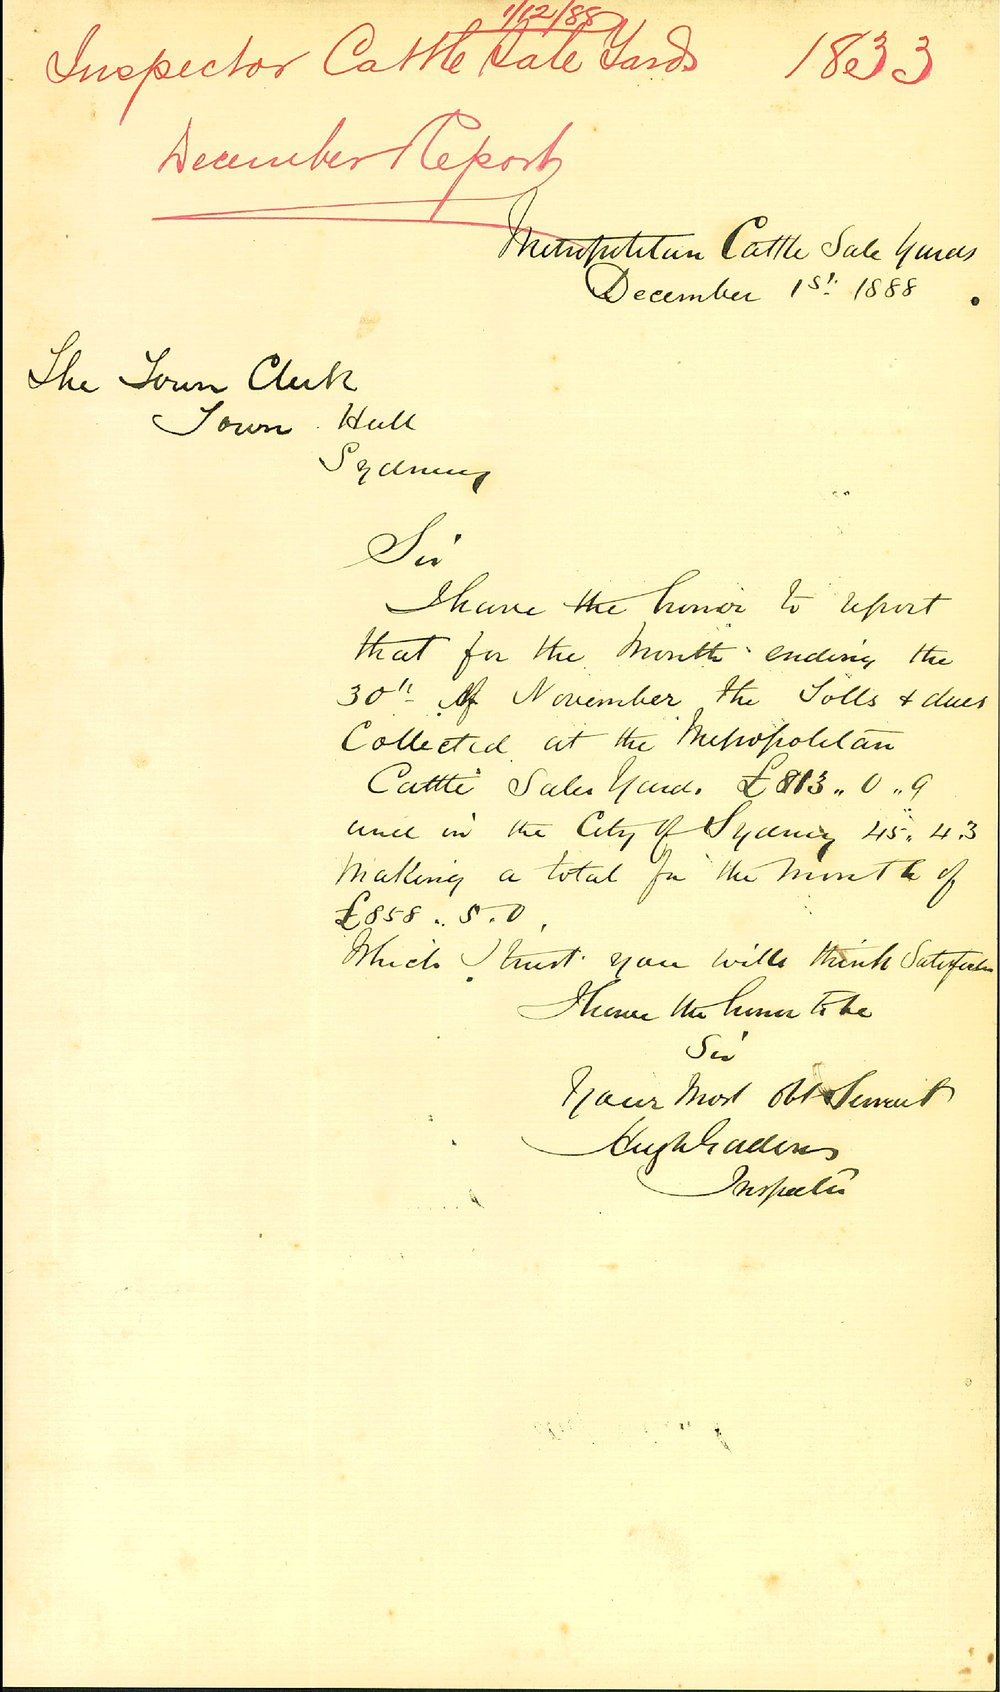 1/12/88
Inspector Cattle Sale Yards 1833
December Report
Metropolitan Cattle Sale Yards
December 1st. 1888
The Town Clerk
Town Hall
Sydney
Sir
I have the honor to report
that for the Month ending the
30th of November the Tolls & dues
Collected at the Metropolitan
Cattle Sales Yard. £813..0..9
and in the City of Sydney 45..4.3
Making a total for the month of
£858..5.0.
Which I trust you will think
I have the honor to be
Sir
Your Most Obt Servant
Hugh
Inspector